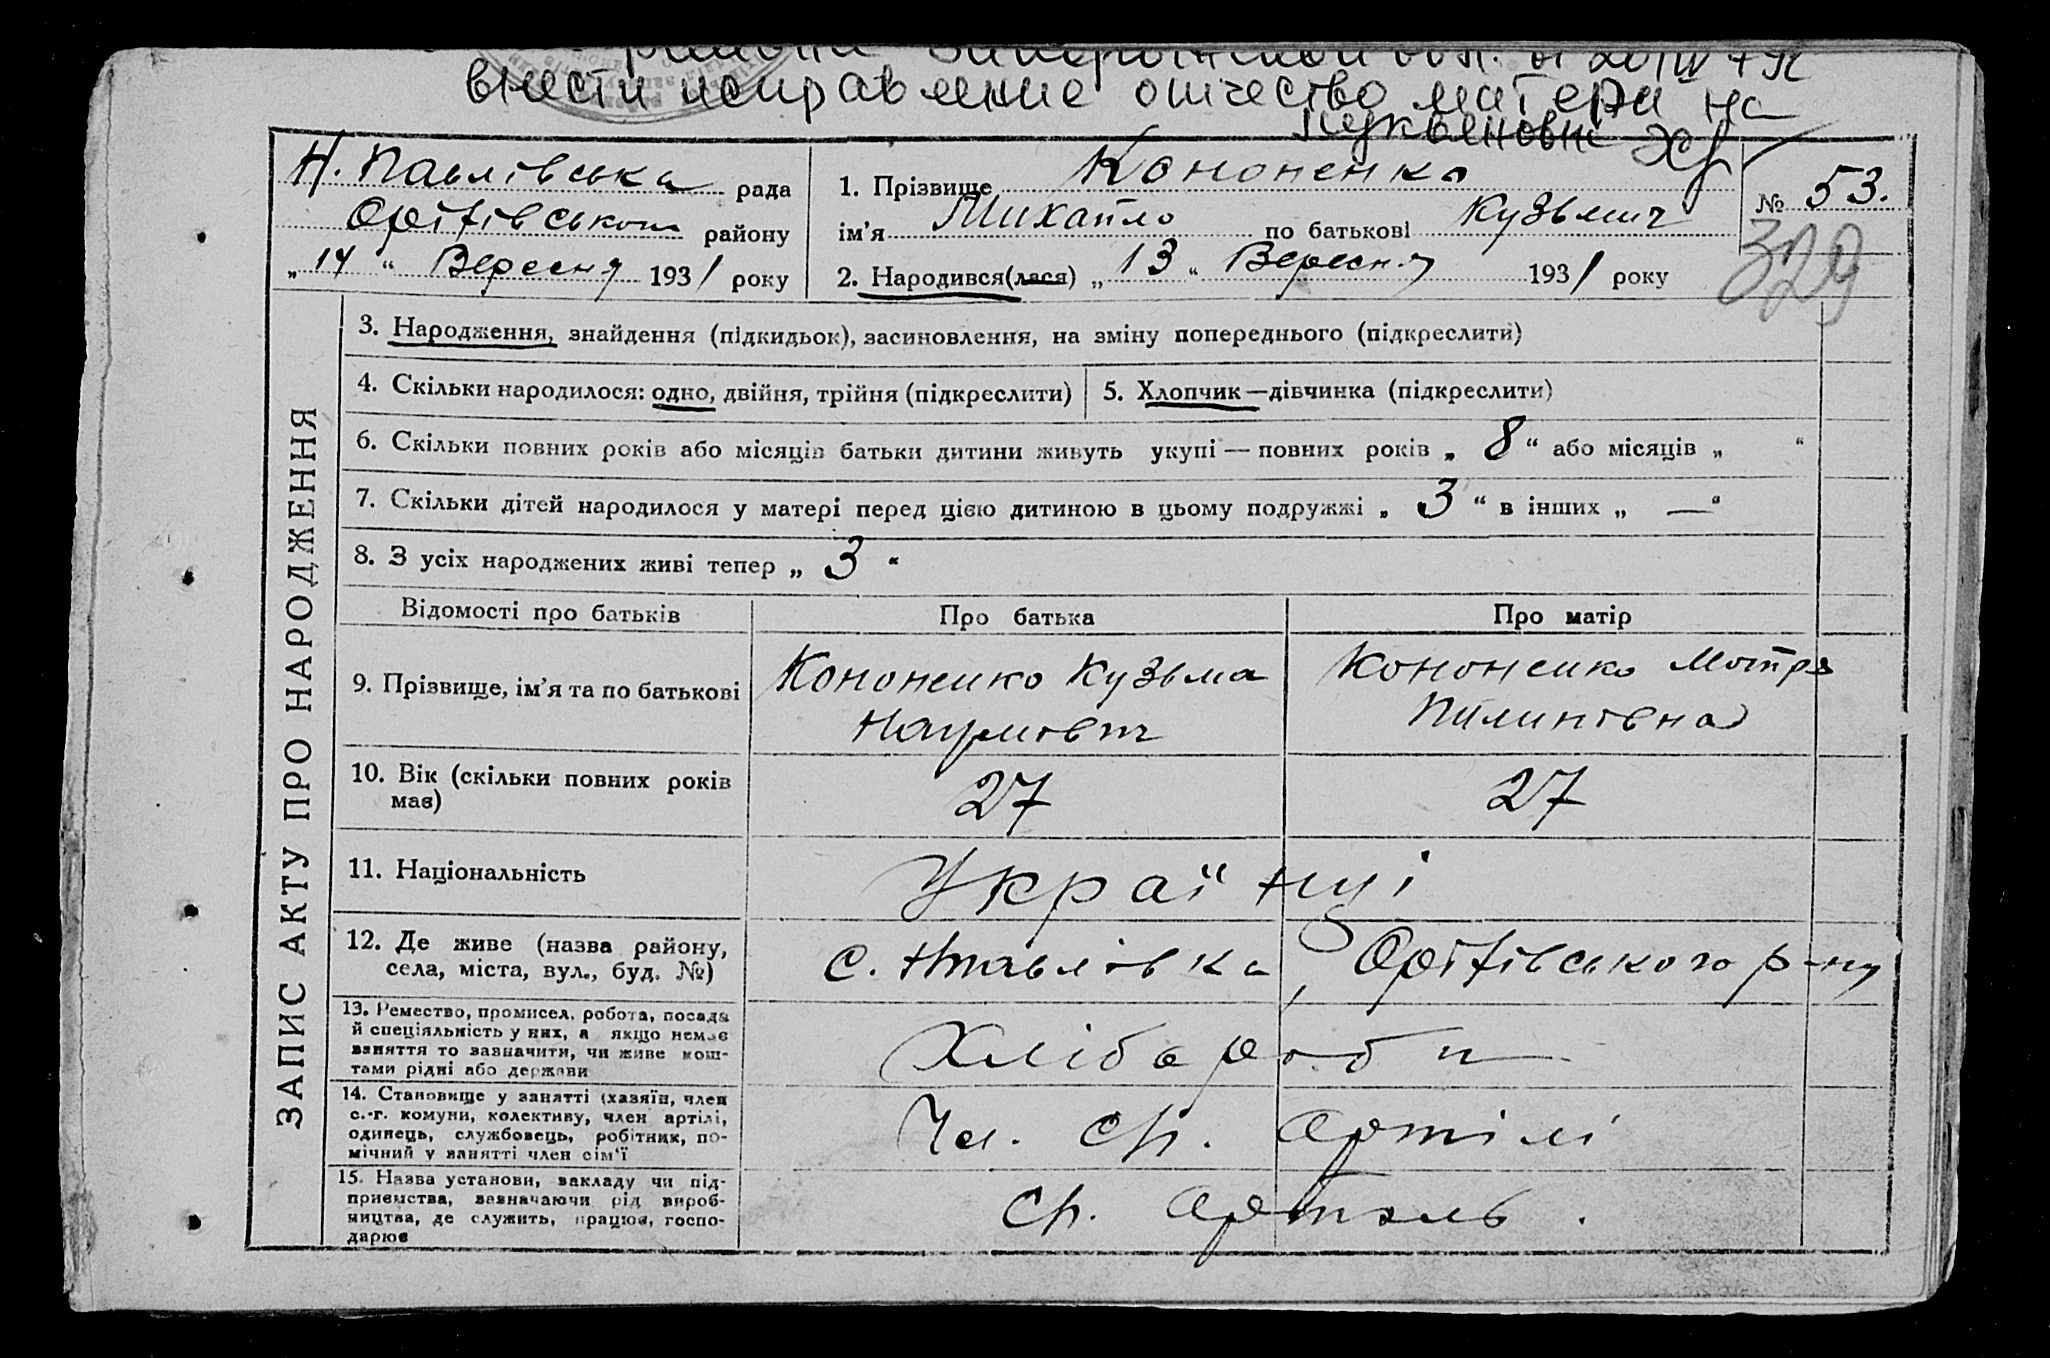 внести исправление отчество матери на
Лукьяновна
Н. Павлівська рада
Оріхівського району
„ 14 “ Вересня 1931 року
1. Прізвище Кононенко
ім’я Михайло по батькові Кузьмич
2. Народився(лася) „ 13 “ Вересня 1931 року
№ 53.
329
ЗАПИС АКТУ ПРО НАРОДЖЕННЯ
3. Народження, знайдення (підкидьок), засиновлення, на зміну попереднього (підкреслити)
4. Скільки народилося: одно, двійня, трійня (підкреслити)
5. Хлопчик—дівчинка (підкреслити)
6. Скільки повних років або місяців батьки дитини живуть укупі — повних років „ 8 “ або місяців „ “
7. Скільки дітей народилося у матері перед цією дитиною в цьому подружжі „ 3 “ в інших „ — “
8. З усіх народжених живі тепер „ 3 “
Відомості про батьків
Про батька
Про матір
9. Прізвище, ім’я та по батькові
Кононенко Кузьма
Наумович
Кононенко Мотря
Пилипівна
10. Вік (скільки повних років
має)
27
27
11. Національність
Українці
12. Де живе (назва району,
села, міста, вул., буд. №)
с. Н Павлівка, Оріхівського р-ну
13. Ремество, промисел, робота, посада
й спеціяльність у них, а якщо немає
заняття то зазначити, чи живе кош-
тами рідні або держави
Хлібороби
14. Становище у занятті (хазяїн, член
с.-г. комуни, колективу, член артілі,
одинець, службовець, робітник, по-
мічний у занятті член сім’ї
Чл. с/г. артілі
15. Назва установи, закладу чи під-
приємства, зазначаючи рід вироб-
ництва, де служить, працює, госпо-
дарює
с/г. артіль.